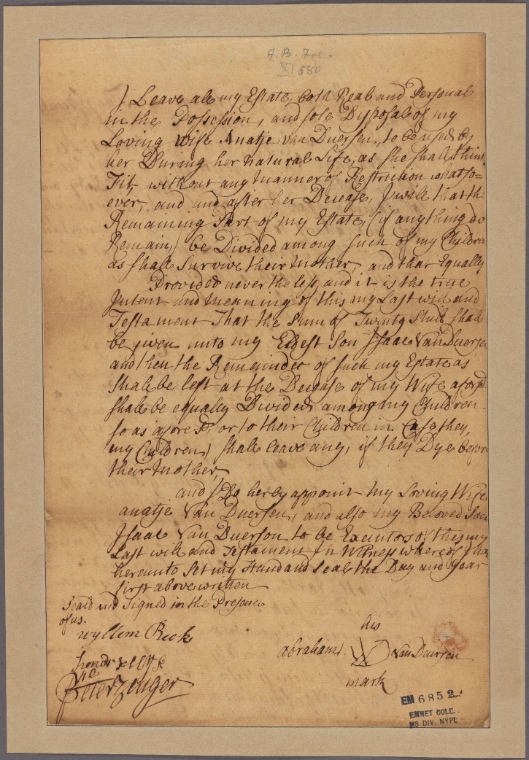 I Leave all my Estate, both Real and Personal
in the Possession, and sole Disposal of my
Loving Wife Anatje Van Duersen, to be used by
her During her Natural Life, as she shall think
Fit, without any manner of Restriction whatso=
ever, and after her Decease, I will that th
Remaining Part of my Estate, (if any thing do
Remain) be Divided among such of my Children
as shall survive their mother, and that Equally
Provided never the less, and it is the true
Intent and meaning of this my Last will and
Testament That the sum of Twenty shill shall
be given unto my Eldest Son Isaac Van Duersen
and then the Remainder of such my Estate as
shall be left at the Decease of my Wife afors.d
shall be equally Divided among my Children
so as afore.d or to their Children in Case they
my Children) shall leave any, if they Dye before
their mother
and I Do hereby appoint my Loving Wife
anatje Van Duersen, and also my Beloved Son
Isaac Van Duerson to be Executors of this my
Last will and Testament In Witness whereof I ha
hereunto Set my Hand and Seal the Day and year
first above written
Seald and Signed in the Presence
of us.
Wyllem Beek
his
abraham Van Duersen
mark
Peter Zenger
EM 6852
EMMET COLL.
MS DIV. NYPL.